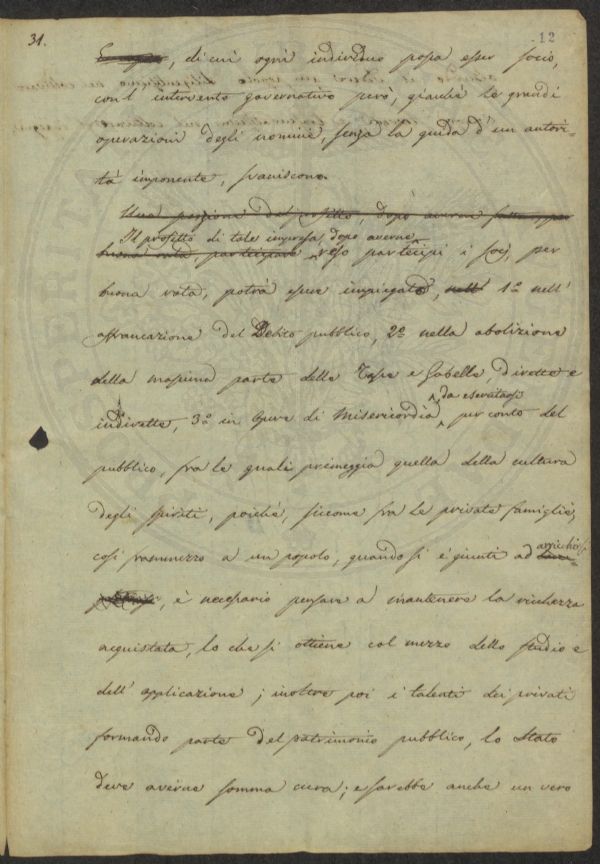 31.
12
, di cui ogni individuo possa esser socio,
con l'intervento governativo però, giacchè le grandi
operazioni degli uomini, senza la guida d'un autori-
tà imponente, svaniscono.
Una porzione del profitto, dopo averne
Il profitto di tale impresa, dopo averne
buona rata, participare reso partecipi i socj, per
buona rata, potrà esser impiegato, nell' 1º nell'
affrancazione del Debito pubblico, 2º nella abolizione
della massima parte delle Tasse e Gabelle, dirette e
da esercitarsi
indirette, 3º in Opere di Misericordia per conto del
pubblico, fra le quali primeggia quella della cultura
degli spiriti, poichè, siccome fra le private famiglie,
così frammezzo a un popolo, quando si è giunti ad arricchirsi
, è necessario pensare a mantenere la ricchezza
acquistata, lo che si ottiene col mezzo dello studio e
dell'applicazione; inoltre poi i talenti dei privati
formando parte del patrimonio pubblico, lo Stato
deve averne somma cura; e sarebbe anche un vero